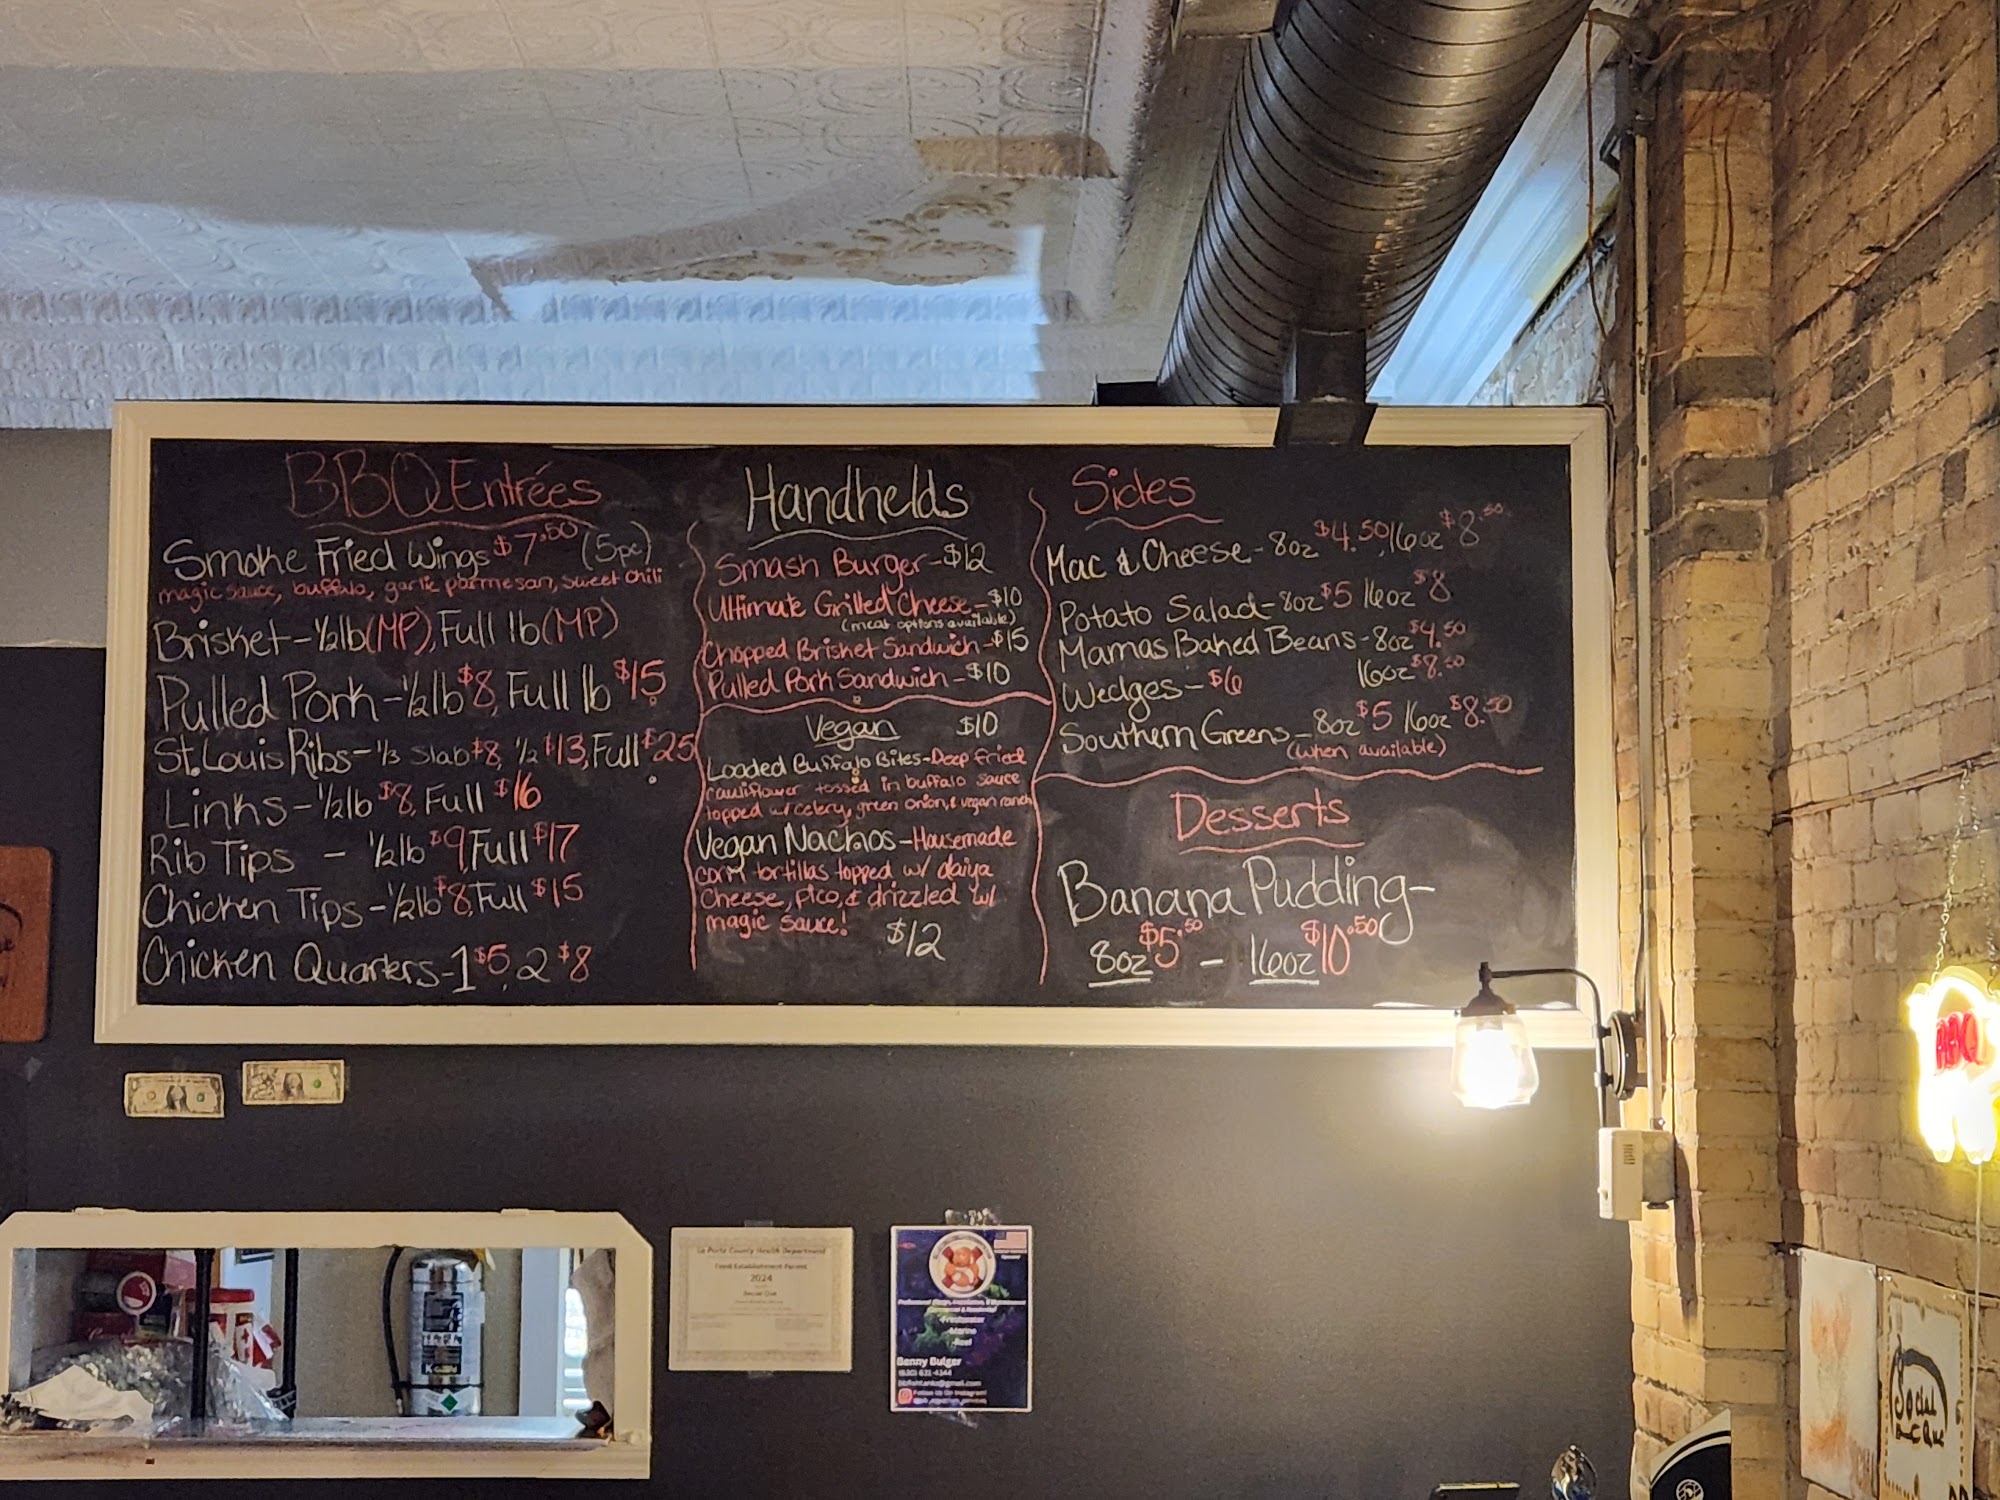 BBQ Entrées
Smoke Fried Wings $7.50 (5pc)
magic sauce, buffalo, garlic parmesan, sweet chili
Brisket-½lb(MP), Full lb(MP)
Pulled Pork-½lb $8, Full lb $15
St. Louis Ribs-⅓ Slab $8, ½ $13, Full $25
Links-½lb $8, Full $16
Rib Tips - ½lb $9, Full $17
Chicken Tips-½lb $8, Full $15
Chicken Quarters-1 $5, 2 $8
Handhelds
Smash Burger-$12
Ultimate Grilled Cheese-$10
(meat options available)
Chopped Brisket Sandwich-$15
Pulled Pork Sandwich-$10
Vegan $10
Loaded Buffalo Bites-Deep fried
cauliflower tossed in buffalo sauce
topped w/ celery, green onion, & vegan ranch
Vegan Nachos-Housemade
corn tortillas topped w/ daiya
Cheese, pico, & drizzled w/
magic sauce!
$12
Sides
Mac & Cheese-8oz $4.50, 16oz $8.50
Potato Salad-8oz $5 16oz $8
Mamas Baked Beans-8oz $4.50
16oz $8.50
Wedges-$6
Southern Greens-8oz $5 16oz $8.50
(when available)
Desserts
Banana Pudding-
8oz $5.50 - 16oz $10.50
BBQ
La Porte County Health Department
Food Establishment Permit
2024
Social Que
-Freshwater
-Marine
-Reef
Benny Bulger
(630) 631-4344
Follow Us On Instagram!
Social
Que